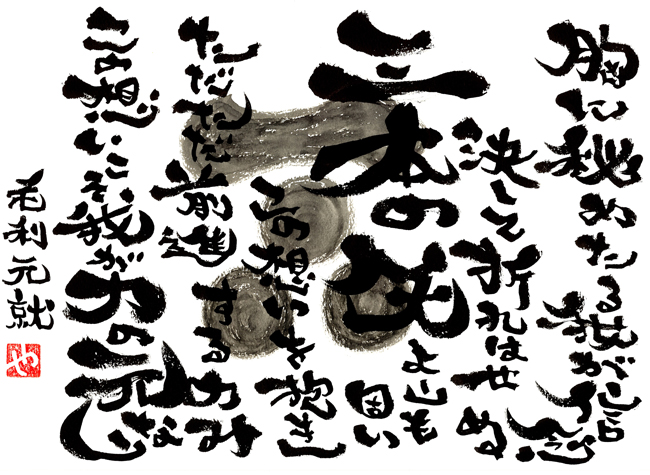 胸に秘めたる我が信念
決して折れはせぬ
三本の矢
よりも固い
この想いを抱き
ただただ前進するのみ
この想いこそ我が力の元なり
毛利元就
や